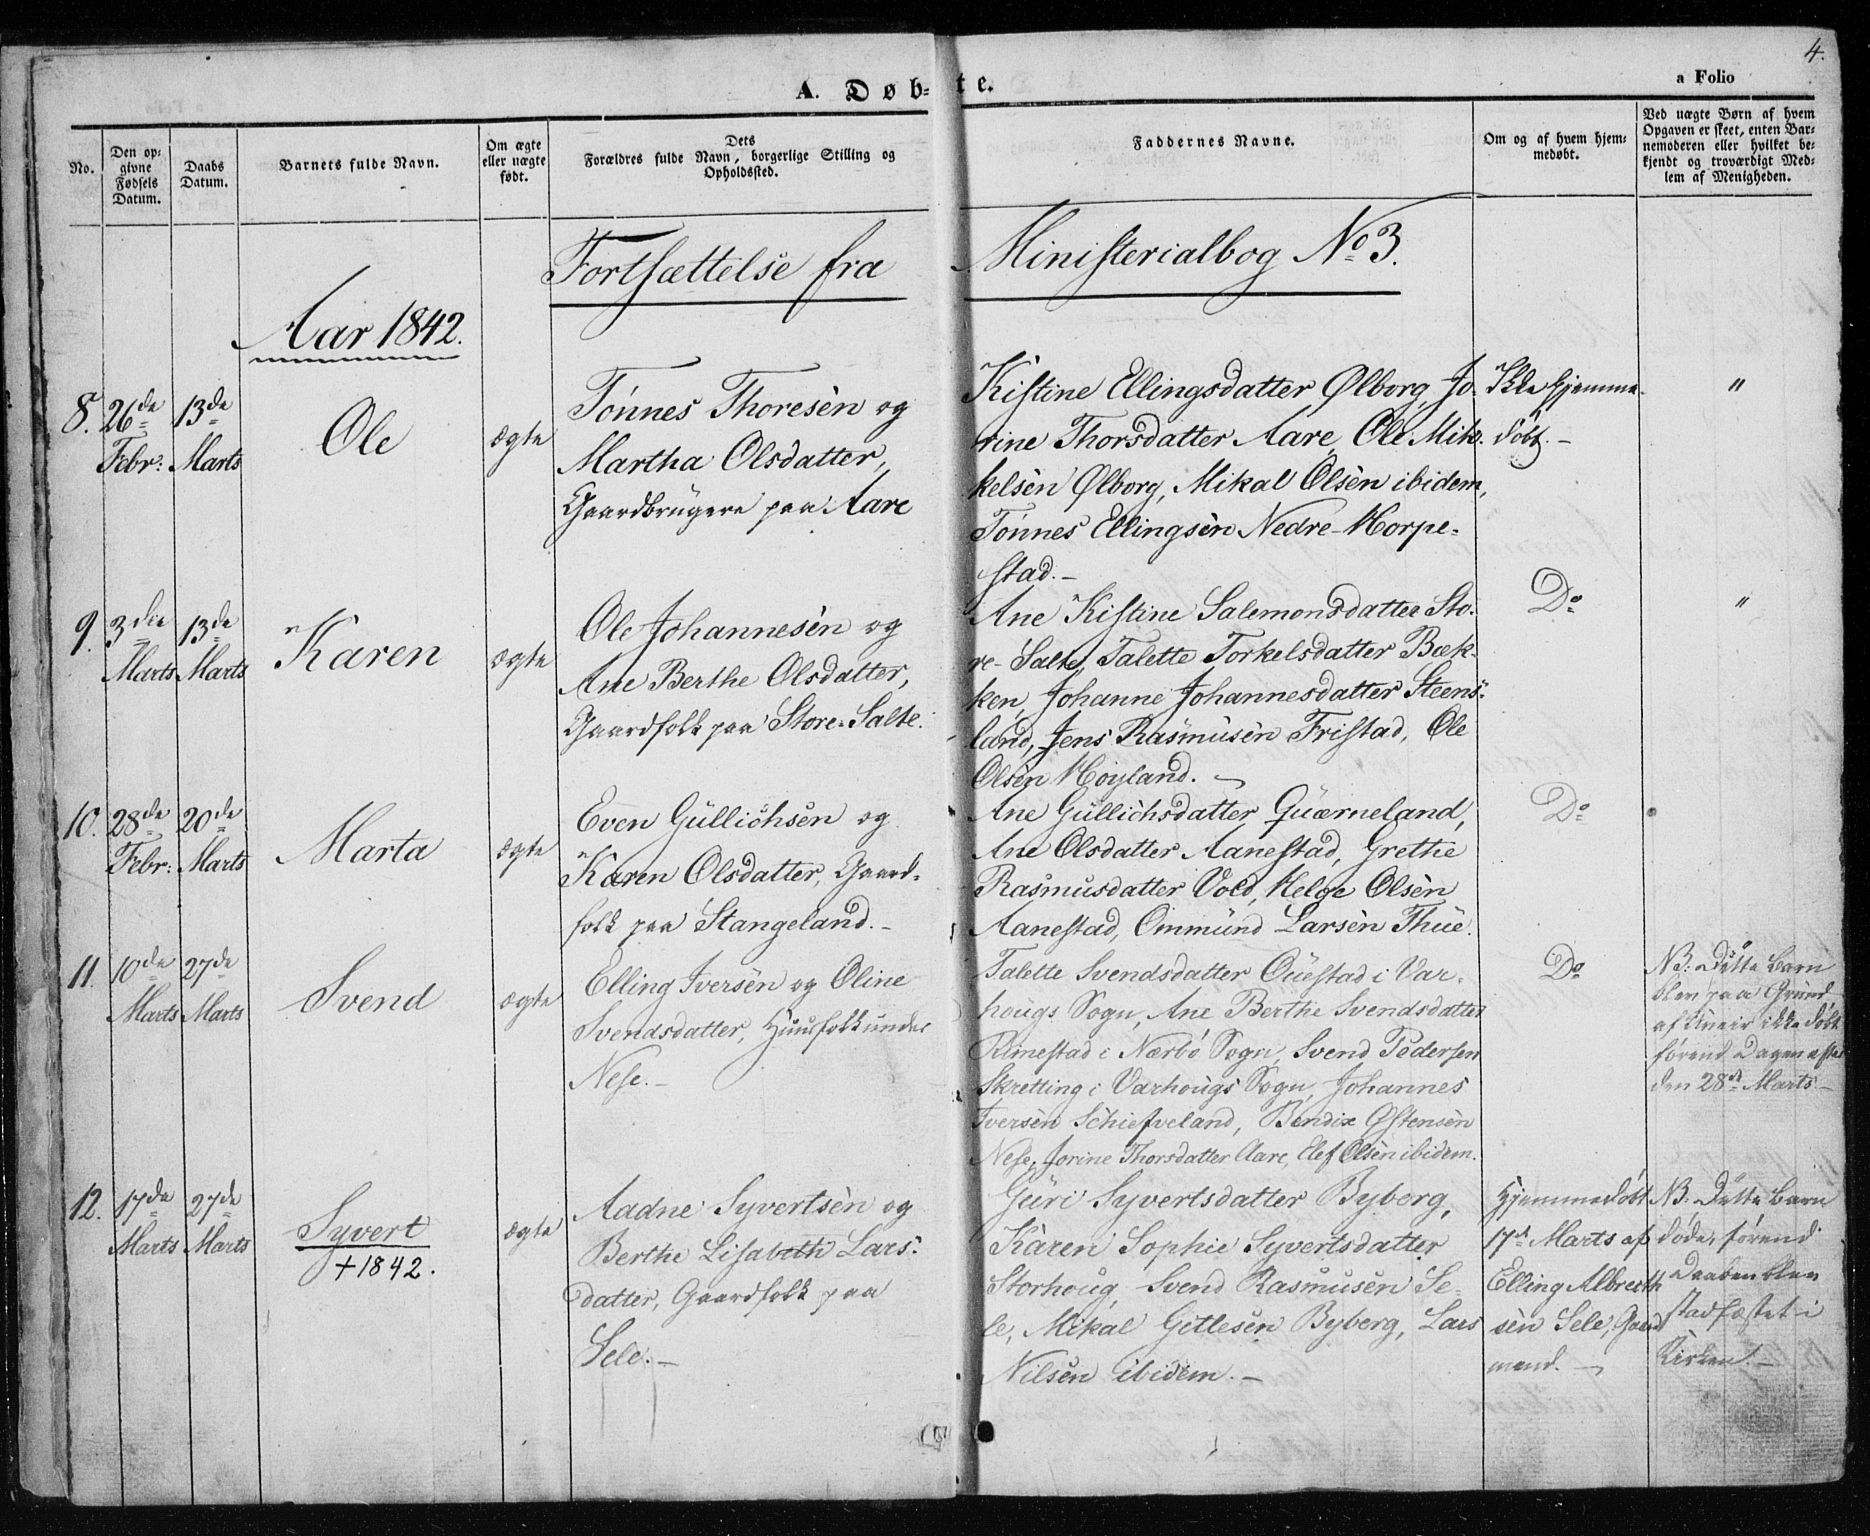 4.
A. Døb=te.
a Folio
No.
Den op=
givne
Fødsels
Datum.
Daabs
Datum.
Barnets fulde Navn.
Om ægte
eller uægte
født.
Dets
Forældres fulde Navn, borgerlige Stilling og
Opholdssted.
Faddernes Navne.
Om og af hvem hjem=
medøbt.
Ved uægte Børn af hvem
Opgaven er skeet, enten Bar=
nemoderen eller hvilket be=
kjendt og troværdigt Med=
lem af Menigheden.
Fortsættelse fra Ministerialbog No 3.
Aar 1842.
8.
26de
Febr:
13de
Marts
Ole
ægte
Tönnes Thoresen og
Martha Olsdatter,
Gaardbrugere paa Aare
Kistine Ellingsdatter Ølborg, Jo-
rine Thorsdatter Aare, Ole Mik-
kelsen Ølborg, Mikal Olsen ibidem,
Tönnes Ellingsen Nedre-Horpe-
stad.-
Ikke hjemme-
døbt.-
"
9.
3die
Marts
13de
Marts
Karen
ægte
Ole Johannesen og
Ane Berthe Olsdatter,
Gaardfolk paa Store-Salte.
Ane Kistine Salemonsdatter Sto-
re-Salte, Talette Torkelsdatter Bæk-
ken, Johanne Johannesdatter Steens-
land, Jens Rasmusen Fristad, Ole
Olsen Höyland. -
Do
"
10.
28de
Febr:
20de
Marts
Marta
ægte
Even Gullichsen og
Karen Olsdatter, Gaard-
folk paa Stangeland.-
Ane Gullichsdatter Quærneland,
Ane Olsdatter Aanestad, Grethe
Rasmusdatter Vold, Helge Olsen
Aanestad, Ommund Larsen Thue.
Do
11.
10de
Marts
27de
Marts
Svend
ægte
Elling Iversen og Oline
Svendsdatter, Huusfolk under
Nese.-
Talette Svendsdatter Ouestad i Var-
hougs Sogn, Ane Berthe Svendsdatter
Rimestad i Nærbö Sogn, Svend Pedersen
Skretting i Varhougs Sogn, Johannes
Iversen Schiefveland, Bendix Østensen
Nese, Jorine Thorsdatter Aare, Elef Olsen ibidem.
Do
NB: Dette Barn
blev paa Grund
af Uveir ikke døbt
førend Dagen efter
den 28de Marts-
12.
17de
Marts
27de
Marts
Syvert
+1842.
ægte
Aadne Syvertsen og
Berthe Lisabeth Lars-
datter, Gaardfolk paa
Sele.-
Guri Syvertsdatter Byberg,
Karen Sophie Syvertsdatter
Storhoug, Svend Rasmusen Se-
le, Mikal Getlesen Byberg, Lars
Nilsen ibidem.-
Hjemmedøbt
17de Marts af
Elling Albrecth
sen Sele, Gaard
mand. -
NB: Dette Barn
døde, førend
Daaben blev
stadfæstet i
Kirken.-